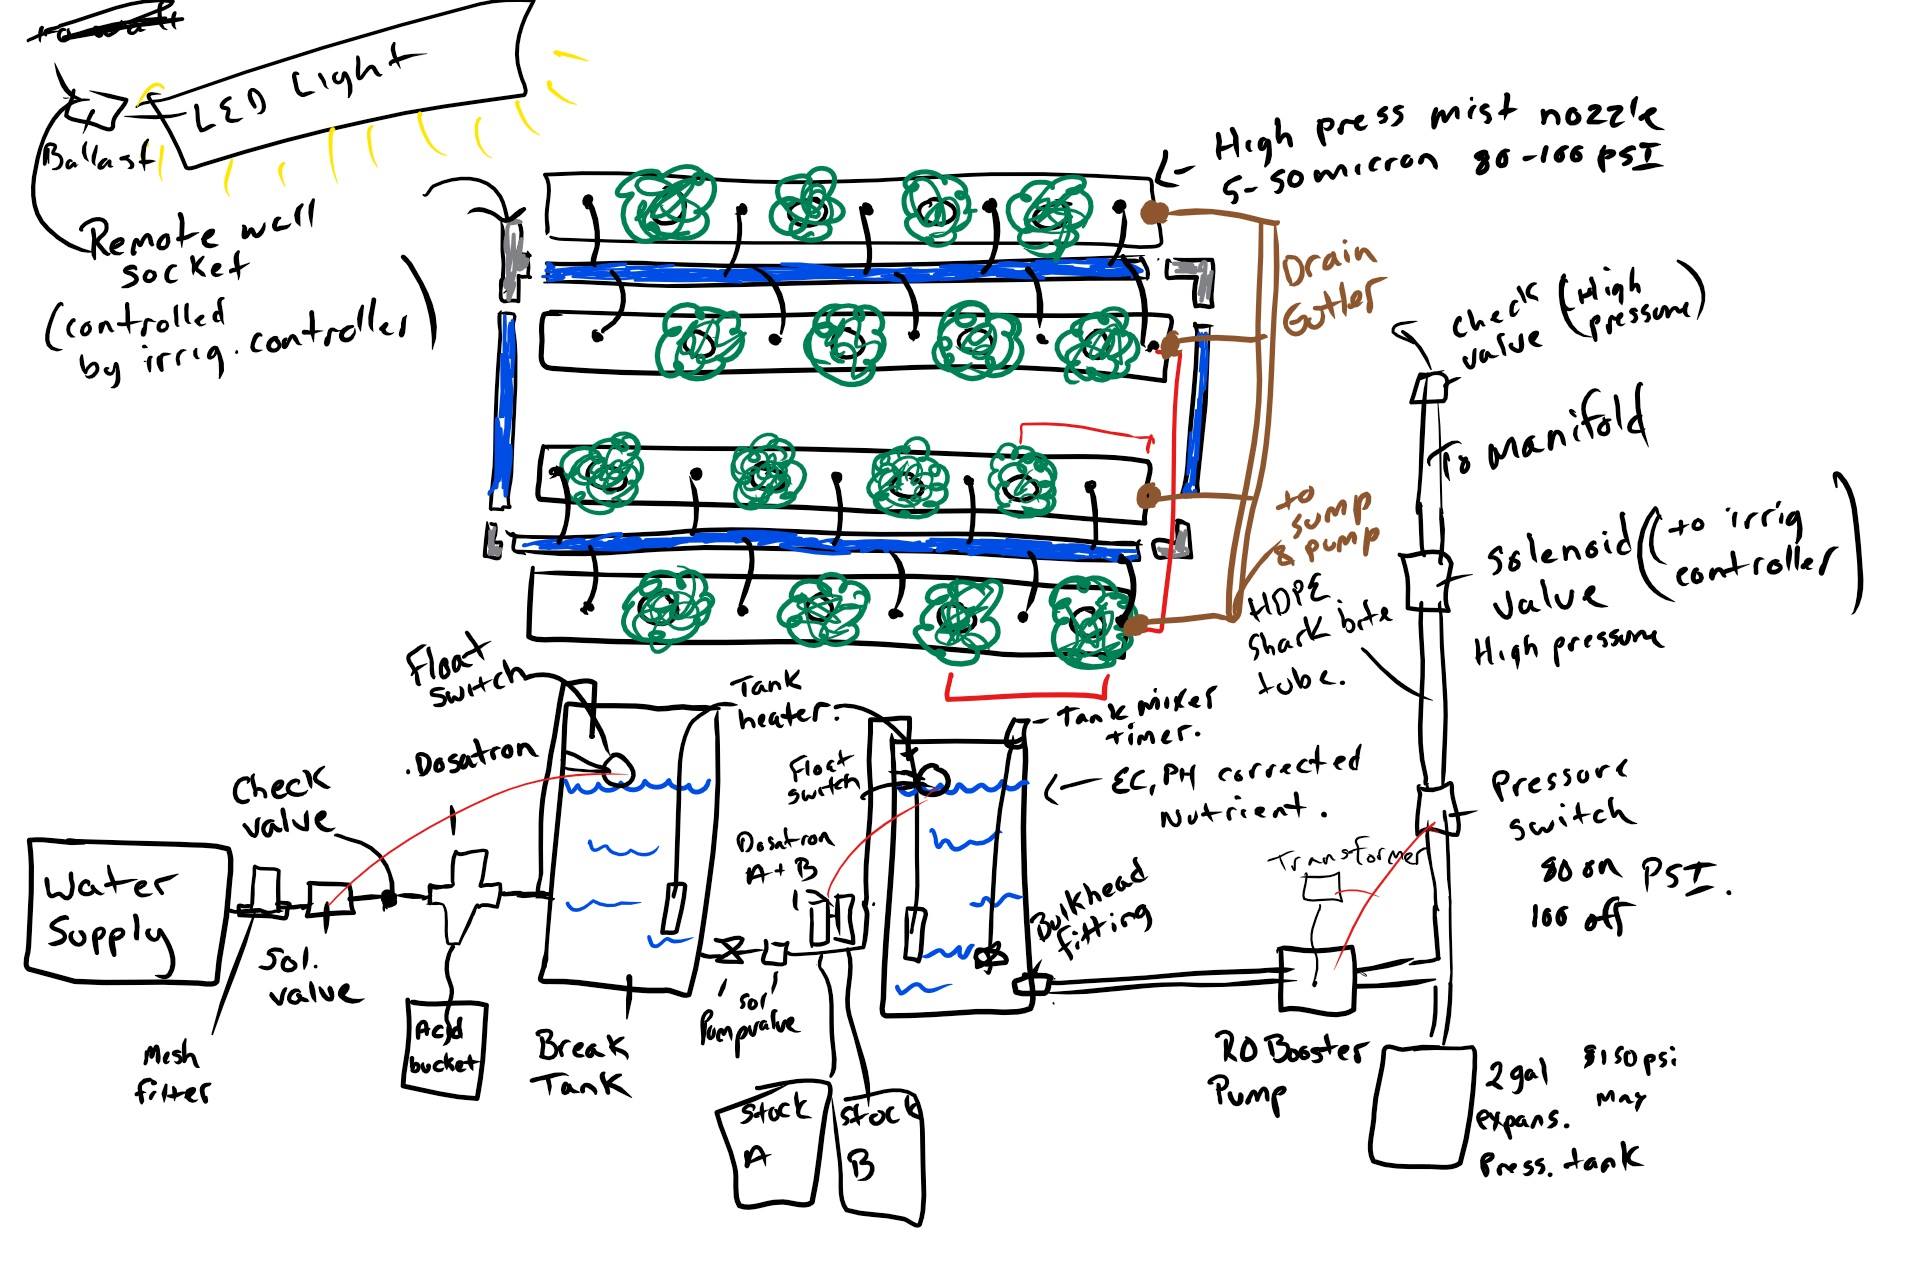 LED Light
Ballast
Remote wall
socket
(controlled
by irrig. controller)
High press mist nozzle
5-50micron 80-100 PSI
Drain
Gutter
to
sump
& pump
Check
valve (High
pressure)
To manifold
Solenoid (to irrig
valve controller)
High pressure
HDPE
shark bite
tube.
Float
switch
Tank
heater.
Tank mixer
timer.
.Dosatron
Float
switch
EC, PH corrected
Nutrient.
Check
valve
Dosatron
A + B
Pressure
switch
80 on PSI.
100 off
Transformer
Bulkhead
fitting
Water
Supply
Sol.
valve
Mesh
filter
Acid
bucket
Break
Tank
Pump
sol
valve
Stock
A
Stock
B
RO Booster
Pump
2 gal
expans.
Press. tank